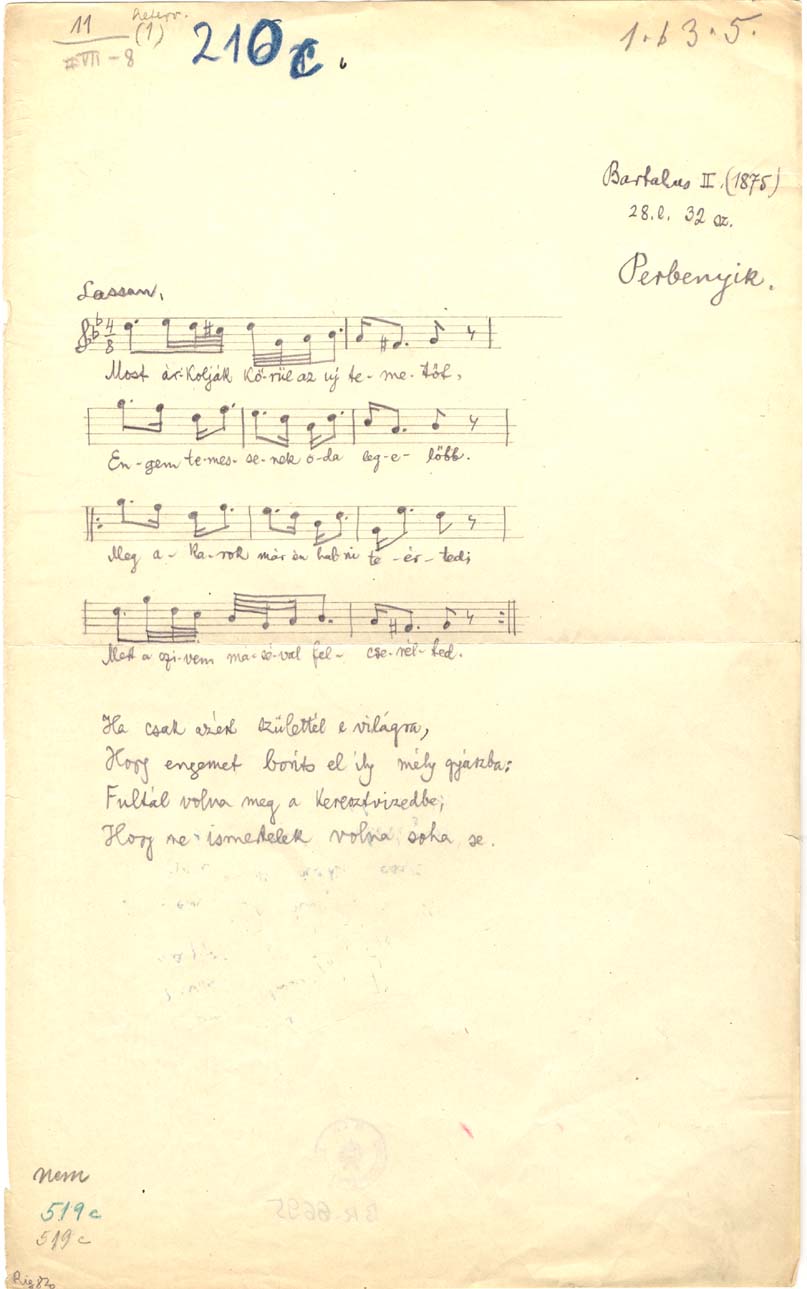 11 heterr.
(1)
VII - 8
210 c.
1. b 3. 5.
Bartalus II. (1875)
28. l. 32 sz.
Perbenyik.
Lassan.
4
8
Most ár-kolják kö-rül az uj te-me-tőt,
En-gem te-mes-se-nek o-da leg-e-lőbb.
Meg a-ka-rok már én halni te-ér-ted;
Mert a szi-vem má-sé-val fel-cse-rél-ted.
Ha csak azért születtél e világra,
Hogy engemet borits el ily mély gyászba;
Fultál volna meg a keresztvizedbe;
Hogy ne ismertelek volna soha se.
BR. 6695
nem
519 c
519 c